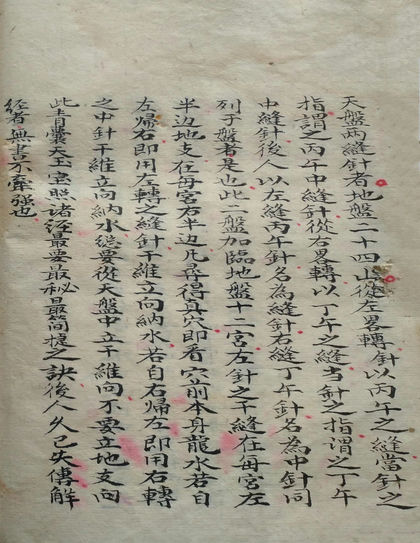 天盤兩縫針者地盤二十四山從左畧轉針以丙午之縫當針之
指謂之丙午中縫針從右畧轉以丁午之縫當針之指謂之丁午
中縫針後人以左縫丙午針名為縫針右縫丁午針名為中針同
列于盤者是也此二盤加臨地盤十二宮左針之干縫在每宮左
半边地支在每宮右半边凡尋得真穴即看穴前本身龍水若自
左歸右即用左轉之縫針干維立向納水若自右歸左即用右轉
之中針干維立向納水總要從天盤中立干維向不要立地支向
此青囊天玉宝照諸經最要最秘最簡捷之訣後人久已失傳解
經者無書不牽強也